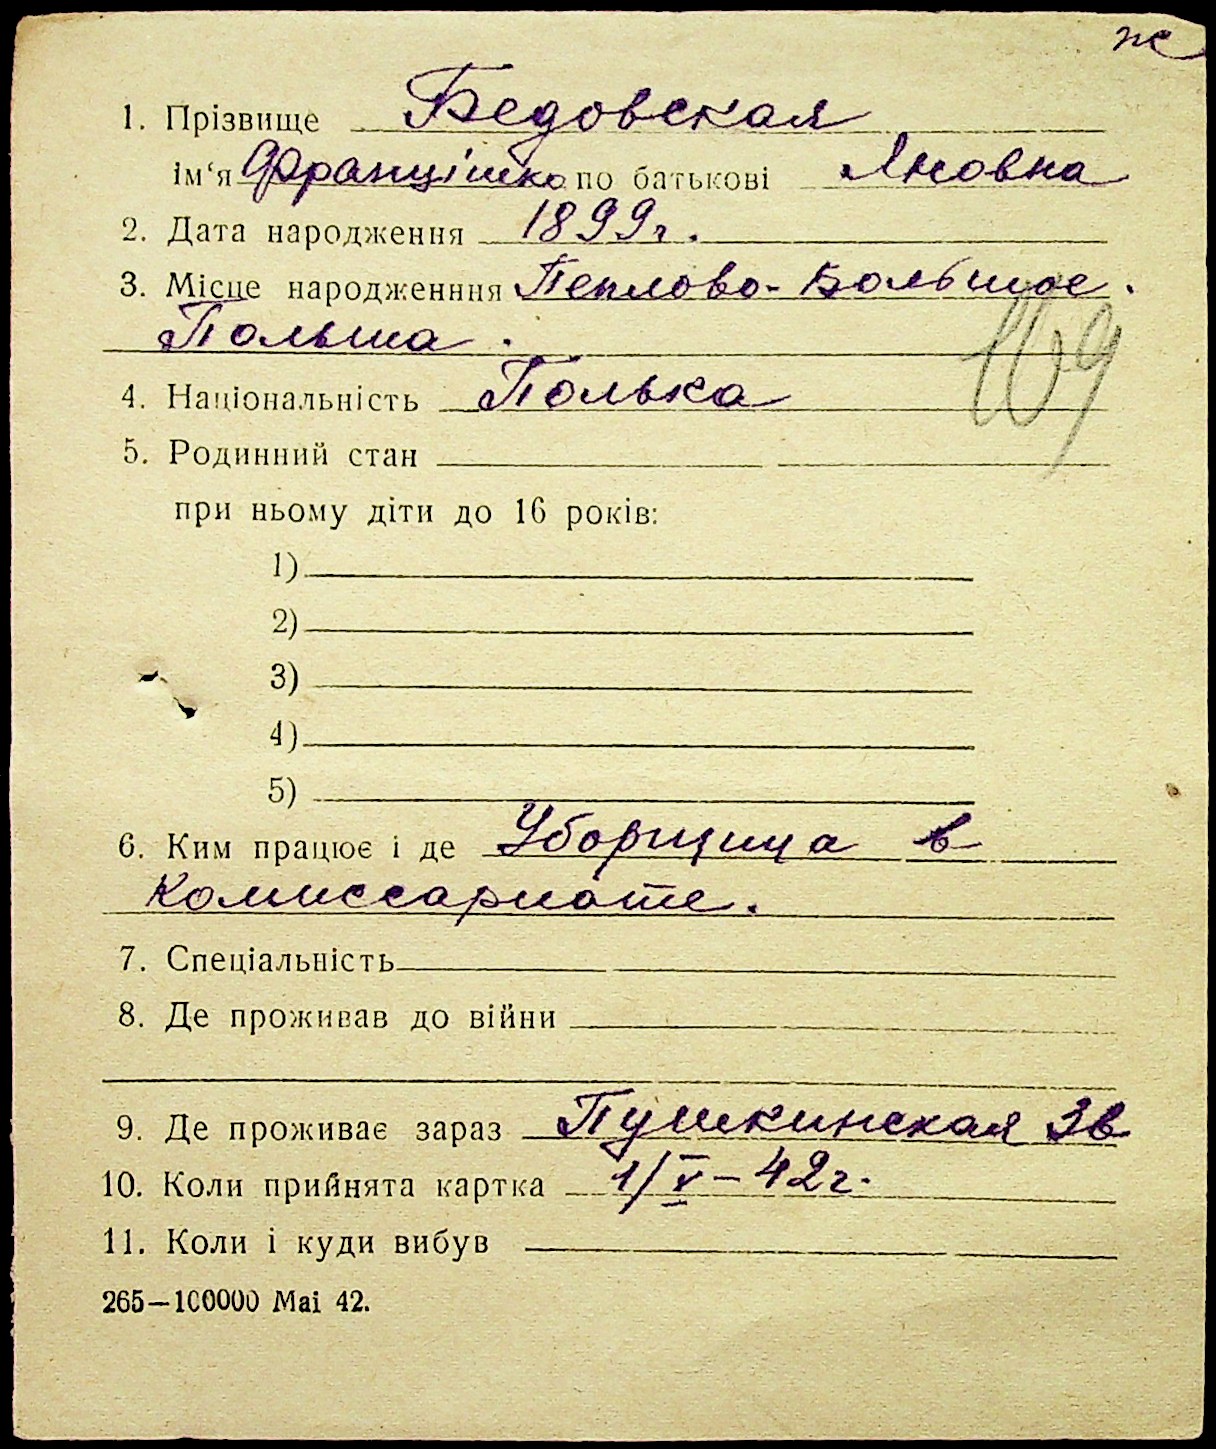 ж
1. Прізвище Бедовская
ім‘я Францішка по батькові Яновна
2. Дата народження 1899г.
3. Місце народженння Пеплово-Большое.
Польша.
109
4. Національність Полька
5. Родинний стан
при ньому діти до 16 років:
1)
2)
3)
4)
5)
6. Ким працює і де Уборщица в
комиссариате.
7. Спеціальність
8. Де проживав до війни
9. Де проживає зараз Пушкинская 3в
10. Коли прийнята картка 1/V – 42г.
11. Коли і куди вибув
265—100000 Mai 42.